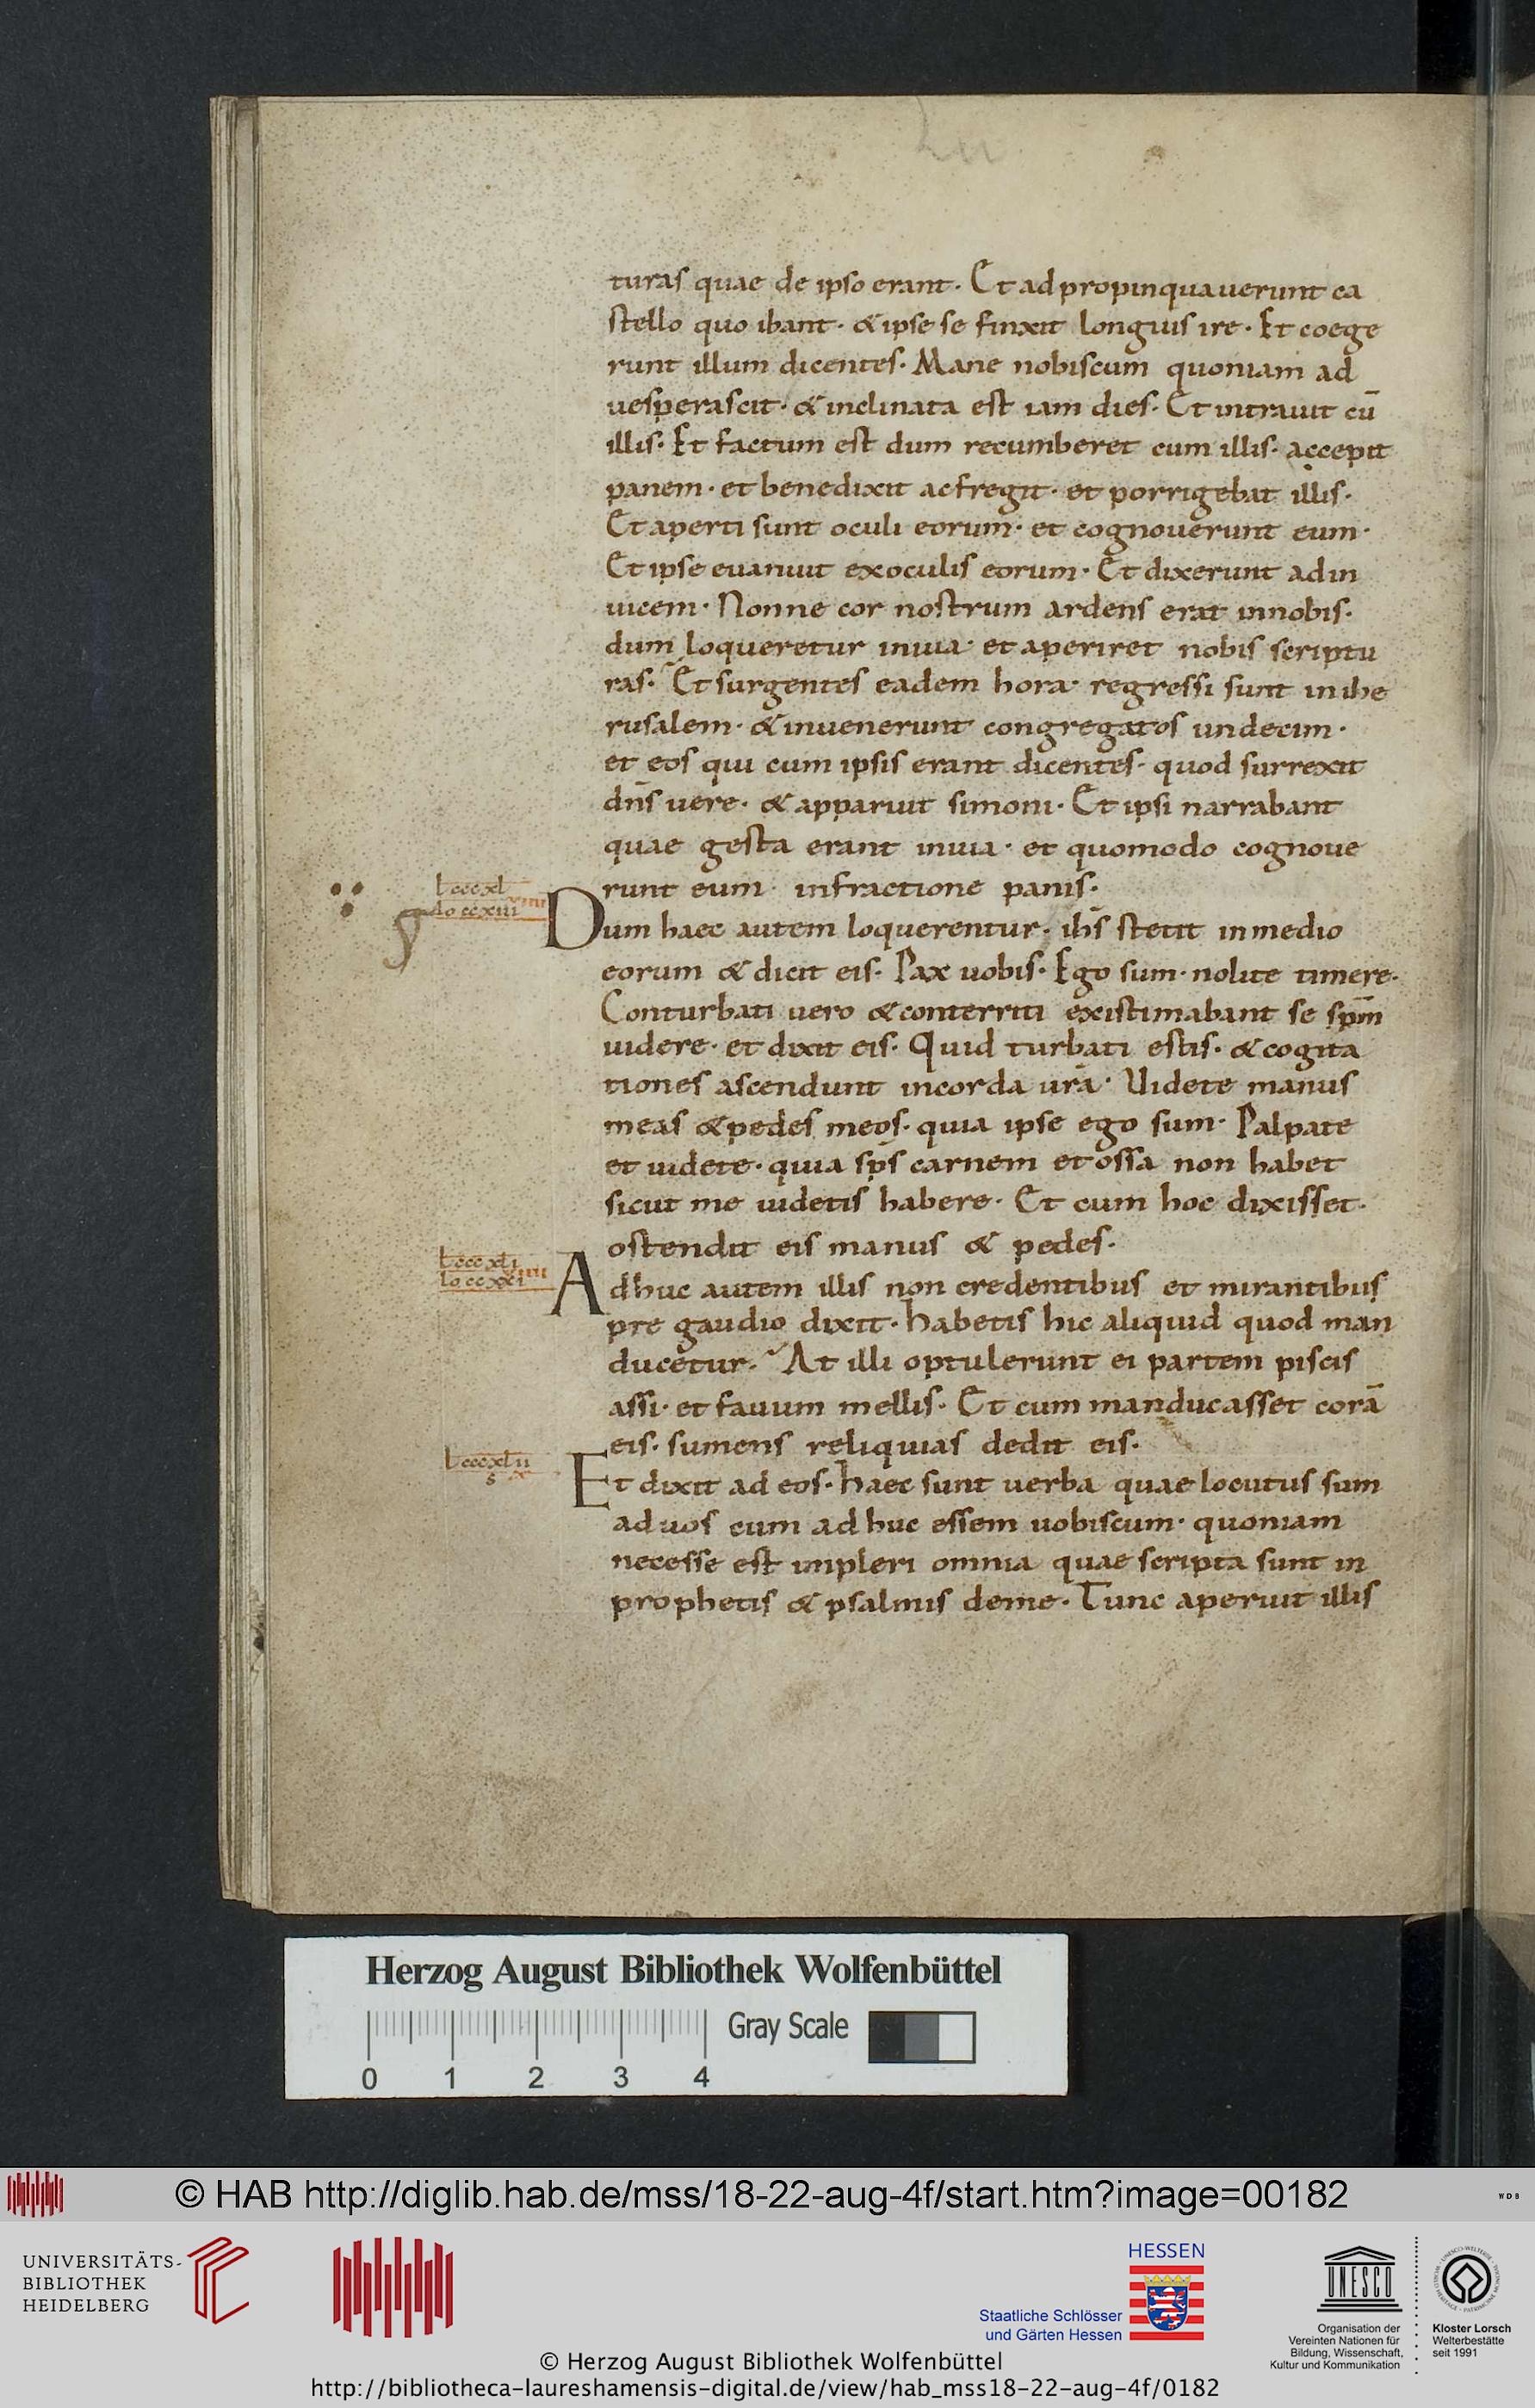 turas quae de ipso erant. Et ad propinquauerunt ca
stello quo ibant. & ipse se finxit longius ire. Et coege
runt illum dicentes. Mane nobiscum quoniam ad
uesperascit. & inclinata est iam dies. Et intrauit cū
illis. Et factum est dum recumberet cum illis. accepit
panem. et benedixit ac fregit. et porrigebat illis.
Et aperti sunt oculi eorum. et cognouerunt eum.
Et ipse euanuit ex oculis eorum. Et dixerunt ad in
uicem. Nonne cor nostrum ardens erat in nobis.
dum loqueretur in uia. et aperiret nobis scriptu
ras. Et surgentes eadem hora. regressi sunt in ihe
rusalem. & inuenerunt congregatos undecim.
et eos qui cum ipsis erant dicentes. quod surrexit
dn̄s uere. & apparuit simoni. Et ipsi narrabant
quae gesta erant in uia. et quomodo cognoue
runt eum in fractione panis.
l cccxl
io ccxiii
Dum haec autem loquerentur. ih̄s stetit in medio
eorum & dicit eis. Pax uobis. Ego sum. nolite timere.
Conturbati uero & conterriti existimabant se sp̄m
uidere. et dixit eis. Quid turbati estis. & cogita
tiones ascendunt in corda ur̄a. Uidete manus
meas & pedes meos. quia ipse ego sum. Palpate
et uidete. quia sp̄s carnem et ossa non habet
sicut me uidetis habere. Et cum hoc dixisset.
ostendit eis manus & pedes.
l cccxli
io ccxxi
Adhuc autem illis non credentibus et mirantibus
pre gaudio dixit. habetis hic aliquid quod man
ducetur. At illi optulerunt ei partem piscis
assi. et fauum mellis. Et cum manducasset corā
eis. sumens reliquias dedit eis.
l cccxlii
Et dixit ad eos. haec sunt uerba quae locutus sum
ad uos cum ad huc essem uobiscum. quoniam
necesse est impleri omnia quae scripta sunt in
prophetis & psalmis de me. Tunc aperuit illis
Herzog August Bibliothek Wolfenbüttel
Gray Scale
0 1 2 3 4
© HAB http://diglib.hab.de/mss/18-22-aug-4f/start.htm?image=00182
W D B
UNIVERSITÄTS-
BIBLIOTHEK
HEIDELBERG
HESSEN
Staatliche Schlösser
und Gärten Hessen
UNESCO
Organisation der
Vereinten Nationen für
Bildung, Wissenschaft,
Kultur und Kommunikation
Kloster Lorsch
Welterbestätte
seit 1991
© Herzog August Bibliothek Wolfenbüttel
http://bibliotheca-laureshamensis-digital.de/view/hab_mss18-22-aug-4f/0182